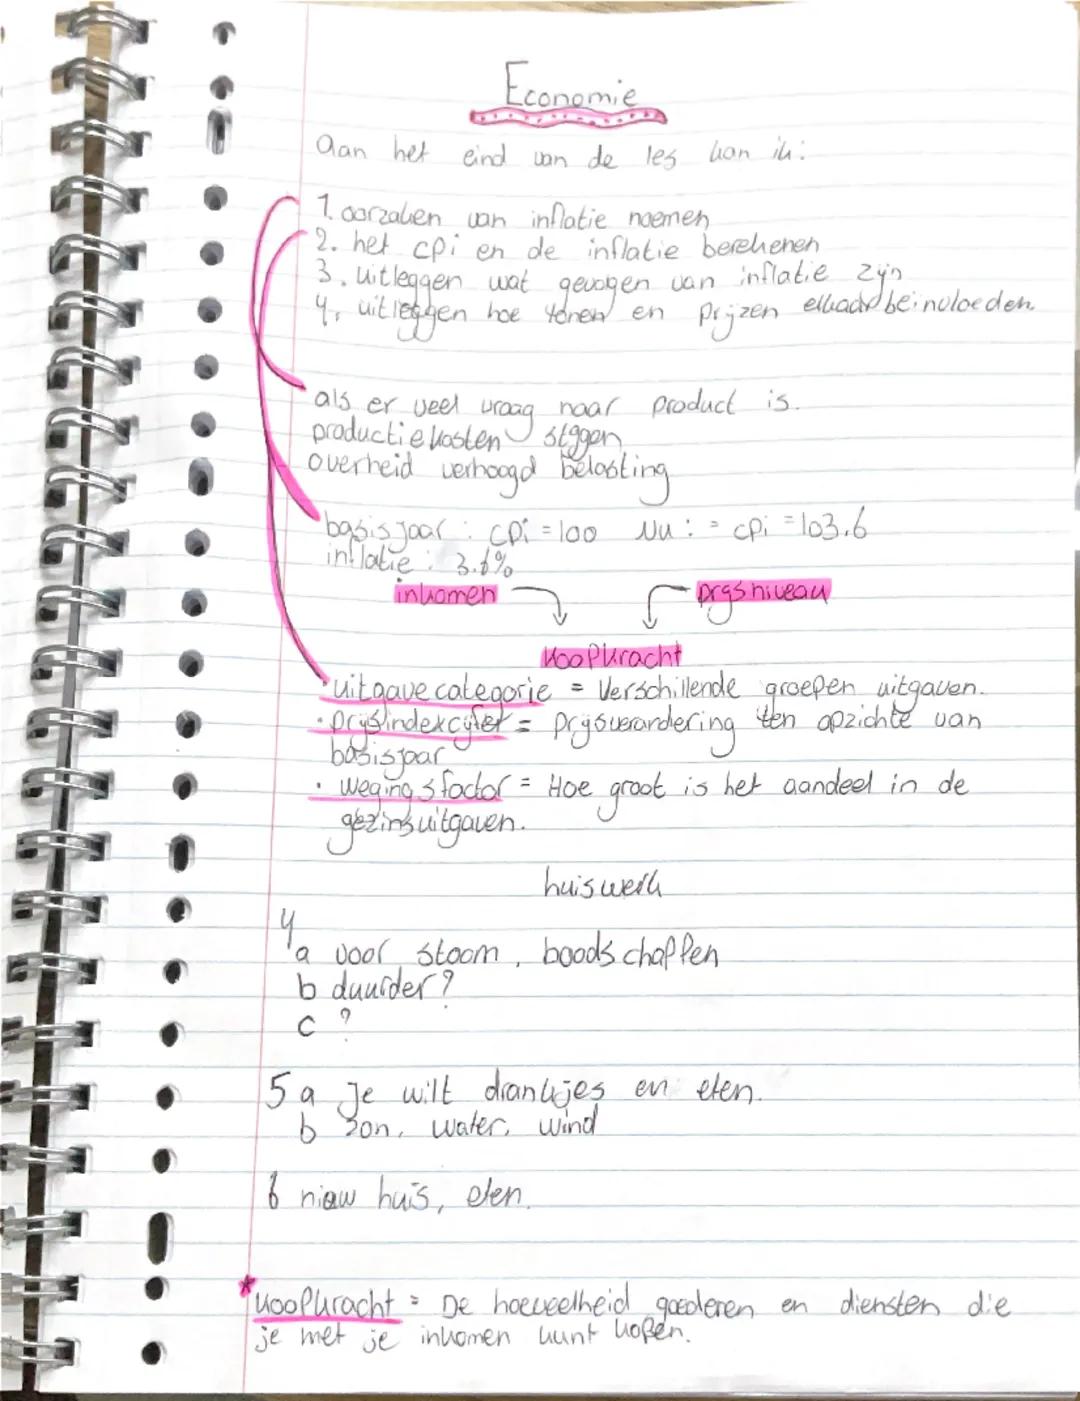 Economie
aan het eind van de les kan ik:
1. oorzaken van inflatie noemen
2. het cpi en de inflatie berekenen
3. uitleggen wat gevogen van inflatie zijn
4. uitleggen hoe lonen en prijzen elkaar beinvloeden.
als er veel vraag naar product is.
productiekosten stijgen
overheid verhoogd belasting
basisjaar : cpi = 100 Nu : = cpi = 103.6
inflatie : 3.6%
inkomen prijsniveau
koopkracht
· uitgave categorie = Verschillende groepen uitgaven.
· prijsindexcijfer = prijsverandering ten opzichte van
basisjaar
· wegingsfactor = Hoe groot is het aandeel in de
gezinsuitgaven.
huiswerk
4
a voor stoom, boodschappen
b duurder?
c ?
5 a Je wilt drankjes en eten.
b zon, water, wind
6 niew huis, eten.
* koopkracht = De hoeveelheid goederen en diensten die
je met je inkomen kunt kopen.